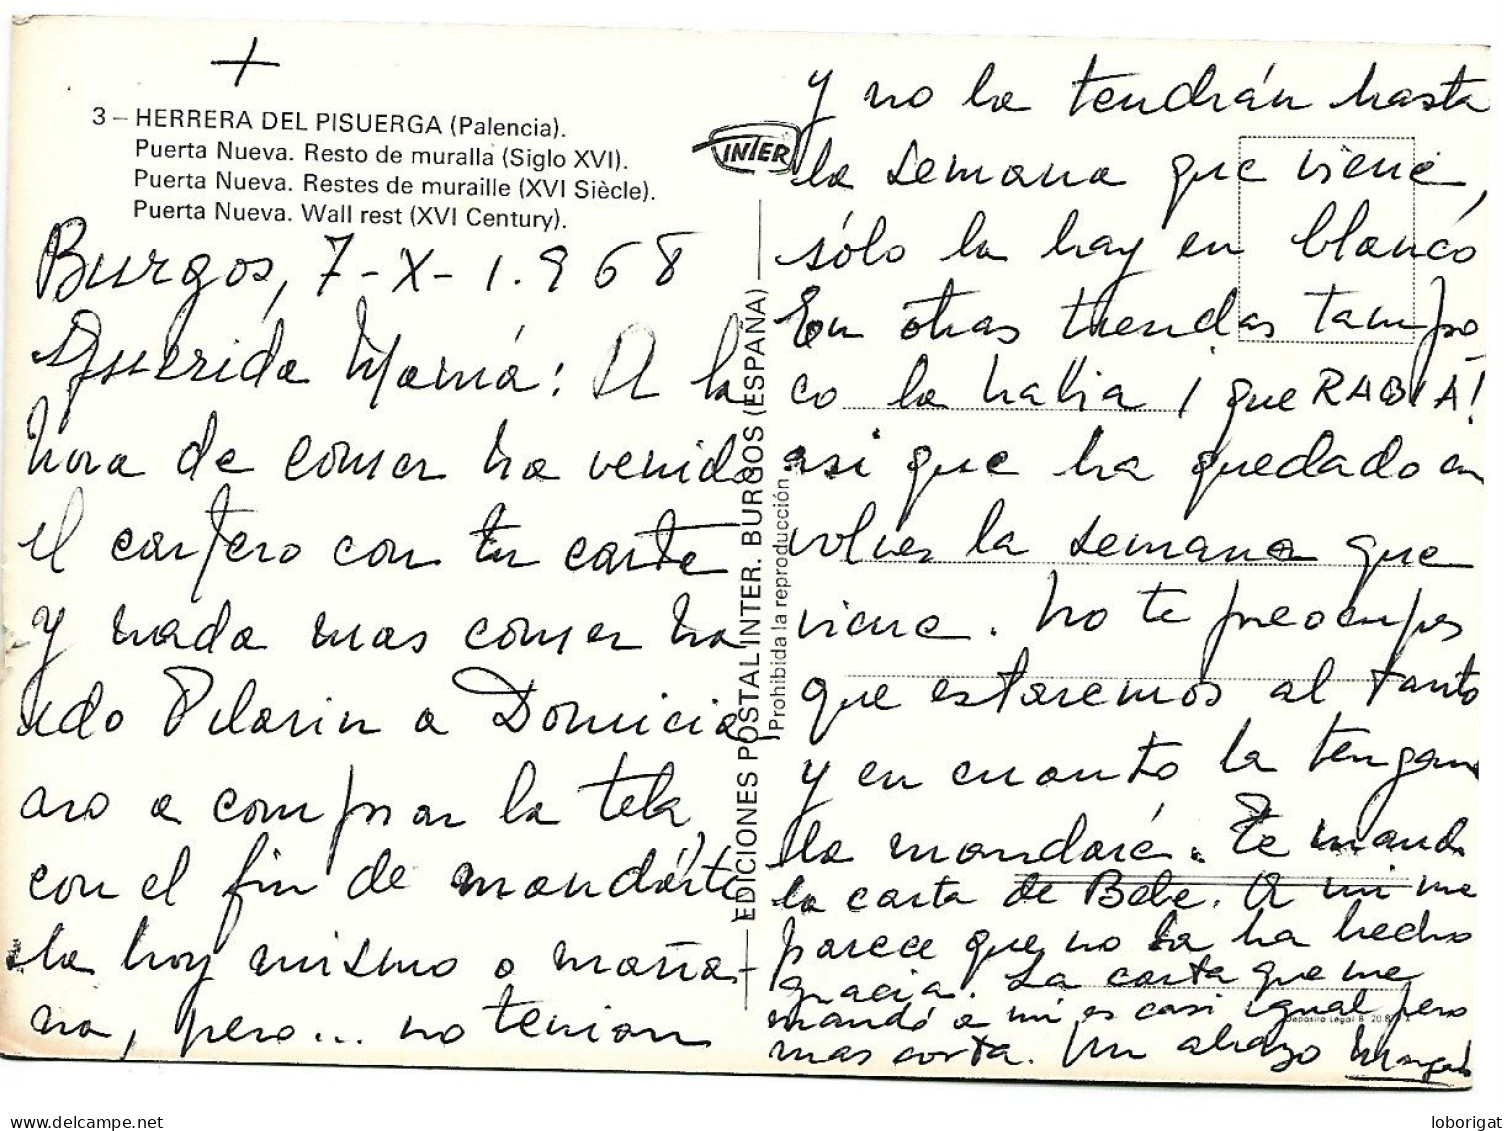 +
3 – HERRERA DEL PISUERGA (Palencia).
Puerta Nueva. Resto de muralla (Siglo XVI).
Puerta Nueva. Restes de muraille (XVI Siècle).
Puerta Nueva. Wall rest (XVI Century).
INTER
Burgos, 7-X-1.968
Querida Mamá: A la
hora de comer ha venido
el cartero con tu carta
y nada mas comer ha
ido Pilarin a Domicia
ano a comprar la tela,
con el fin de mandárte
la hoy mismo o maña-
na, pero... no tenian
EDICIONES POSTAL INTER. BURGOS (ESPAÑA)
Prohibida la reproducción
y no la tendrán hasta
la semana que viene,
sólo la hay en blanco
En otras tiendas tampo
co la habia ¡que RABIA!
asi que ha quedado en
volver la semana que
viene. No te preocupes
que estaremos al tanto
y en cuanto la tengan
la mandaré. Te mando
la carta de Bebe. A mi me
parece que no la ha hecho
gracia. La carta que me
mandó a mi es casi igual pero
mas corta. Un abrazo
Depósito Legal B. 20
loborigat